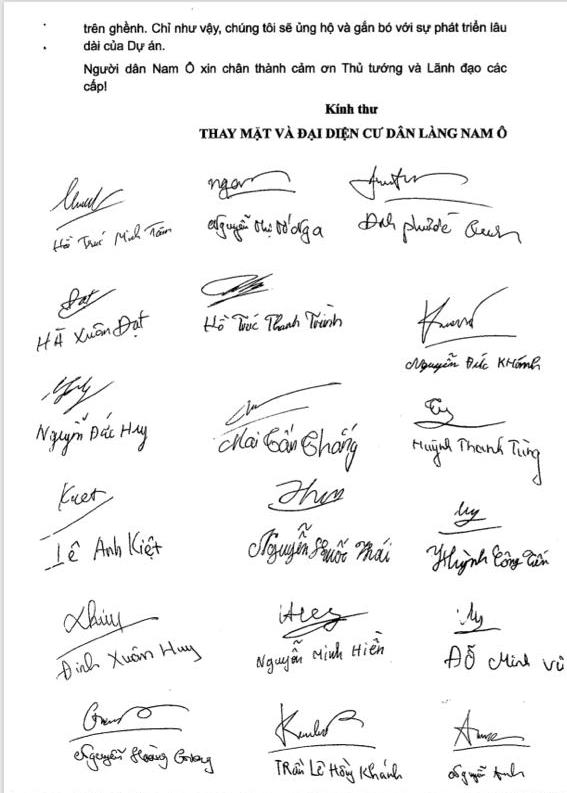 trên ghềnh. Chỉ như vậy, chúng tôi sẽ ủng hộ và gắn bó với sự phát triển lâu
dài của Dự án.
Người dân Nam Ô xin chân thành cảm ơn Thủ tướng và Lãnh đạo các
cấp!
Kính thư
THAY MẶT VÀ ĐẠI DIỆN CƯ DÂN LÀNG NAM Ô
Hồ Trúc Minh Tâm
Nguyễn Thị Tố Nga
Đinh
Đạt
HÀ Xuân Đạt
Hồ Trúc Thanh Trinh
Nguyễn Đức KHánh
Nguyễn Đức Huy
Mai Tấn Thắng
Huỳnh Thanh Tùng
Lê Anh Kiệt
Nguyễn Phước Thái
Huỳnh Công Tiến
Đinh Xuân Huy
Nguyễn Minh Hiền
ĐỖ Minh Vũ
Nguyễn Hoàng
TRần Lê Hồng Khánh
Nguyễn Anh